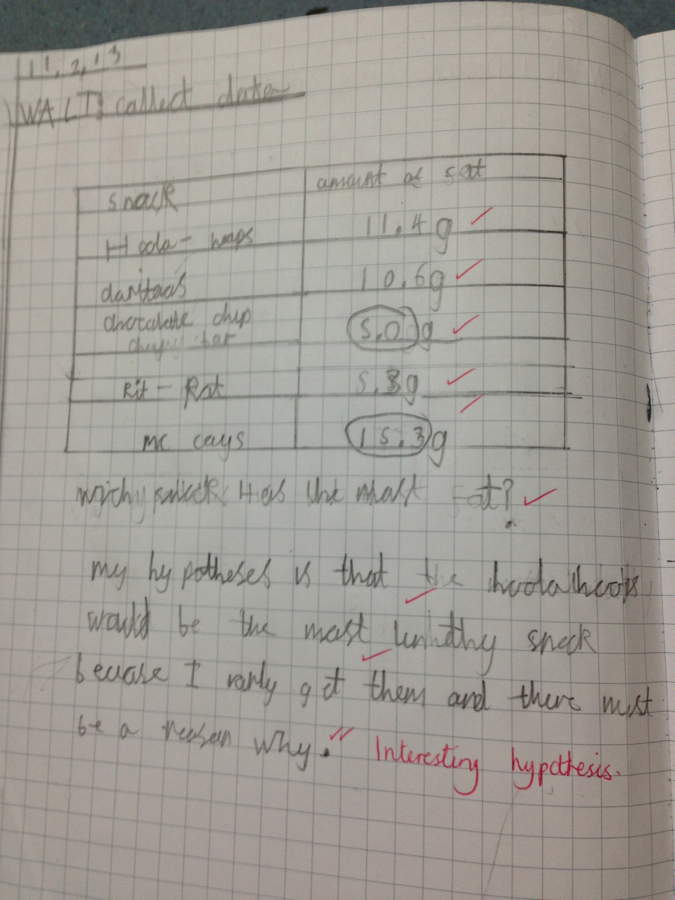 11.2.13
WALT: collect data
snack amount of fat
Hoola-hoops 11.4g
daritaos 10.6g
chocolate chip 5.0g
chewy bar
Rit-Rat 5.3g
mc coys 15.3g
snack Has the most fat?
my hypotheses is that the hoolahoops
would be the most unhelthy snack
becuase I rarly get them and there must
be a reason why. Interesting hypothesis.